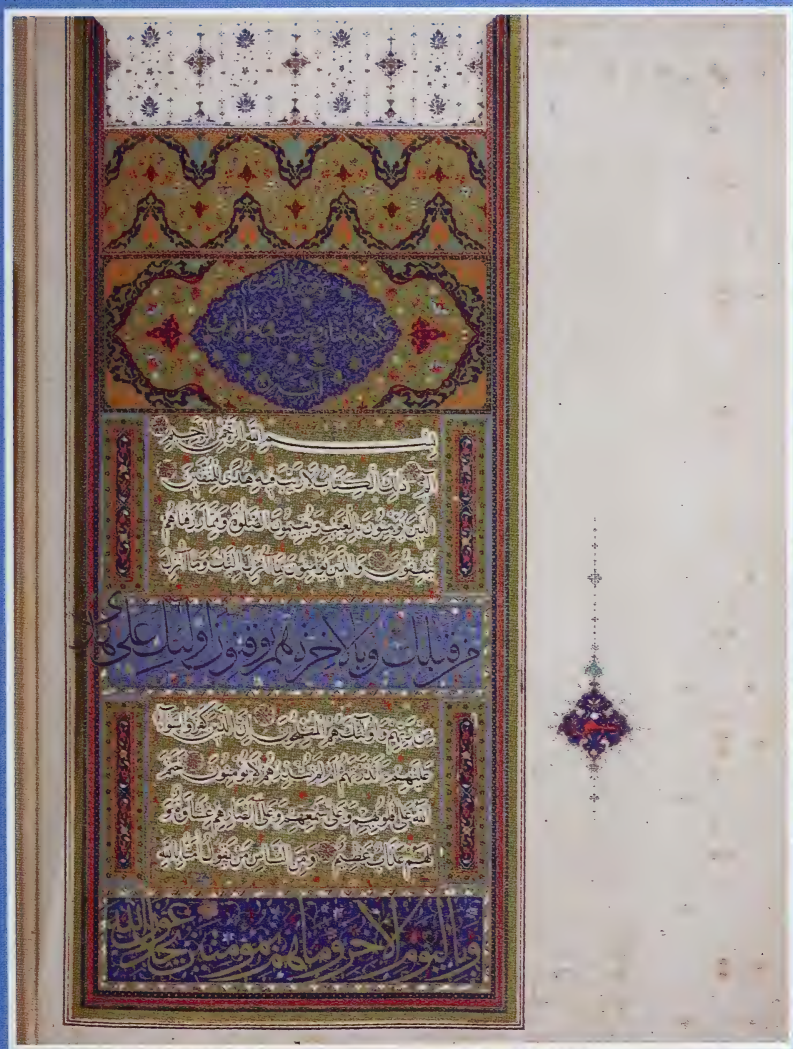 بسم الله الرحمن الرحيم
الم ذلك الكتاب لا ريب فيه هدى للمتقين
الذين يؤمنون بالغيب ويقيمون الصلوة ومما رزقناهم
ينفقون والذين يؤمنون بما أنزل إليك وما أنزل
من قبلك وبالآخرة هم يوقنون أولئك على هدى
من ربهم وأولئك هم المفلحون إن الذين كفروا سواء
عليهم ءأنذرتهم أم لم تنذرهم لا يؤمنون ختم
الله على قلوبهم وعلى سمعهم وعلى أبصارهم غشاوة و
لهم عذاب عظيم ومن الناس من يقول آمنا بالله
وباليوم الآخر وما هم بمؤمنين يخادعون الله